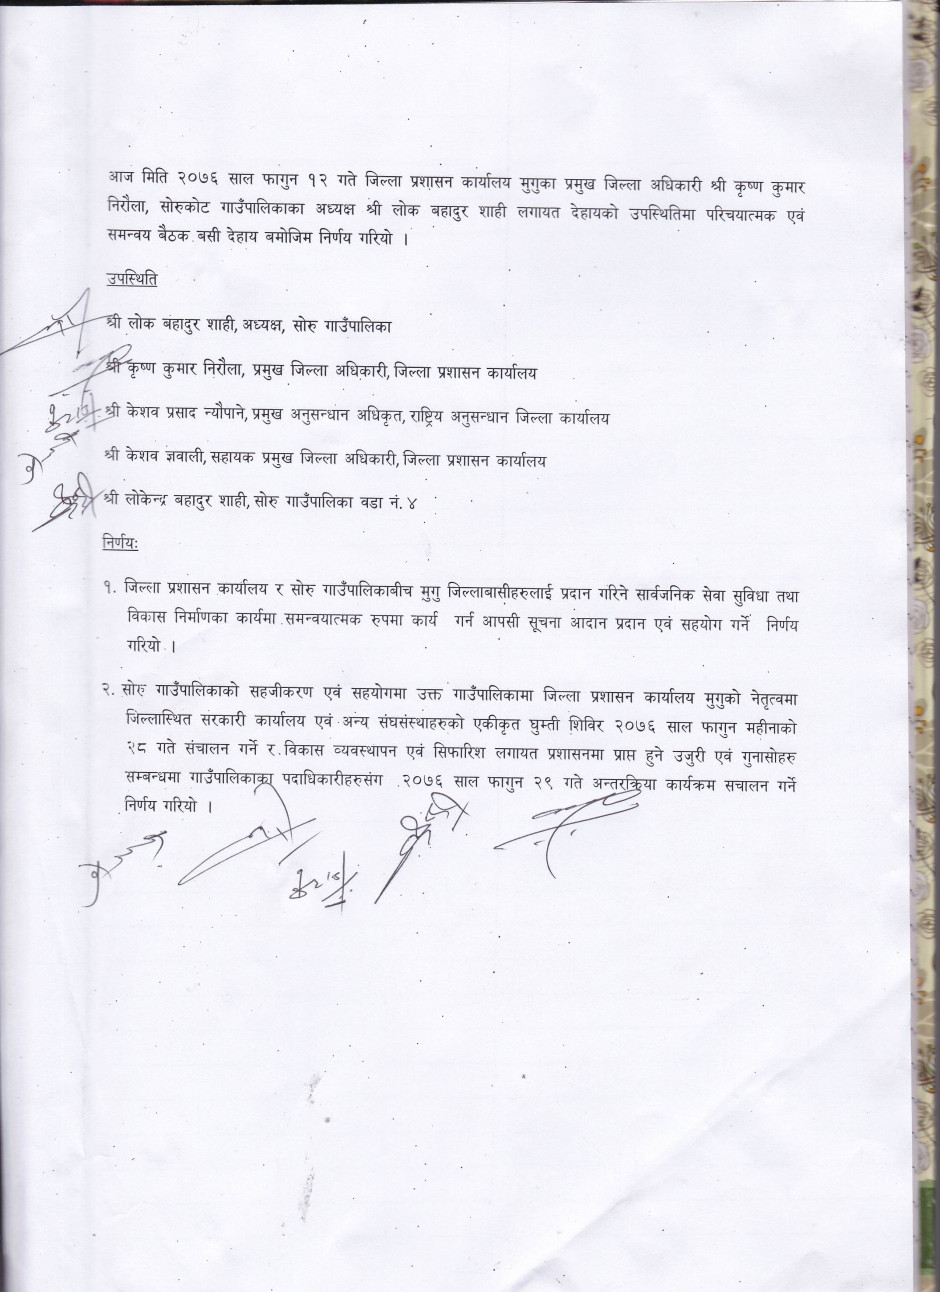 आज मिति २०७६ साल फागुन १२ गते जिल्ला प्रशासन कार्यालय मुगुका प्रमुख जिल्ला अधिकारी श्री कृष्ण कुमार
निरौला, सोरुकोट गाउँपालिकाका अध्यक्ष श्री लोक बहादुर शाही लगायत देहायको उपस्थितिमा परिचयात्मक एवं
समन्वय बैठक बसी देहाय बमोजिम निर्णय गरियो ।
उपस्थिति
श्री लोक बहादुर शाही, अध्यक्ष, सोरु गाउँपालिका
श्री कृष्ण कुमार निरौला, प्रमुख जिल्ला अधिकारी, जिल्ला प्रशासन कार्यालय
श्री केशव प्रसाद न्यौपाने, प्रमुख अनुसन्धान अधिकृत, राष्ट्रिय अनुसन्धान जिल्ला कार्यालय
श्री केशव ज्ञवाली, सहायक प्रमुख जिल्ला अधिकारी, जिल्ला प्रशासन कार्यालय
श्री लोकेन्द्र बहादुर शाही, सोरु गाउँपालिका वडा नं. ४
निर्णयः
१. जिल्ला प्रशासन कार्यालय र सोरु गाउँपालिकाबीच मुगु जिल्लाबासीहरुलाई प्रदान गरिने सार्वजनिक सेवा सुविधा तथा
विकास निर्माणका कार्यमा समन्वयात्मक रुपमा कार्य गर्न आपसी सूचना आदान प्रदान एवं सहयोग गर्ने निर्णय
गरियो ।
२. सोरु गाउँपालिकाको सहजीकरण एवं सहयोगमा उक्त गाउँपालिकामा जिल्ला प्रशासन कार्यालय मुगुको नेतृत्वमा
जिल्लास्थित सरकारी कार्यालय एवं अन्य संघसंस्थाहरुको एकीकृत घुम्ती शिविर २०७६ साल फागुन महीनाको
२८ गते संचालन गर्ने र विकास व्यवस्थापन एवं सिफारिश लगायत प्रशासनमा प्राप्त हुने उजुरी एवं गुनासोहरु
सम्बन्धमा गाउँपालिकाका पदाधिकारीहरुसंग २०७६ साल फागुन २९ गते अन्तरक्रिया कार्यक्रम सचालन गर्ने
निर्णय गरियो ।